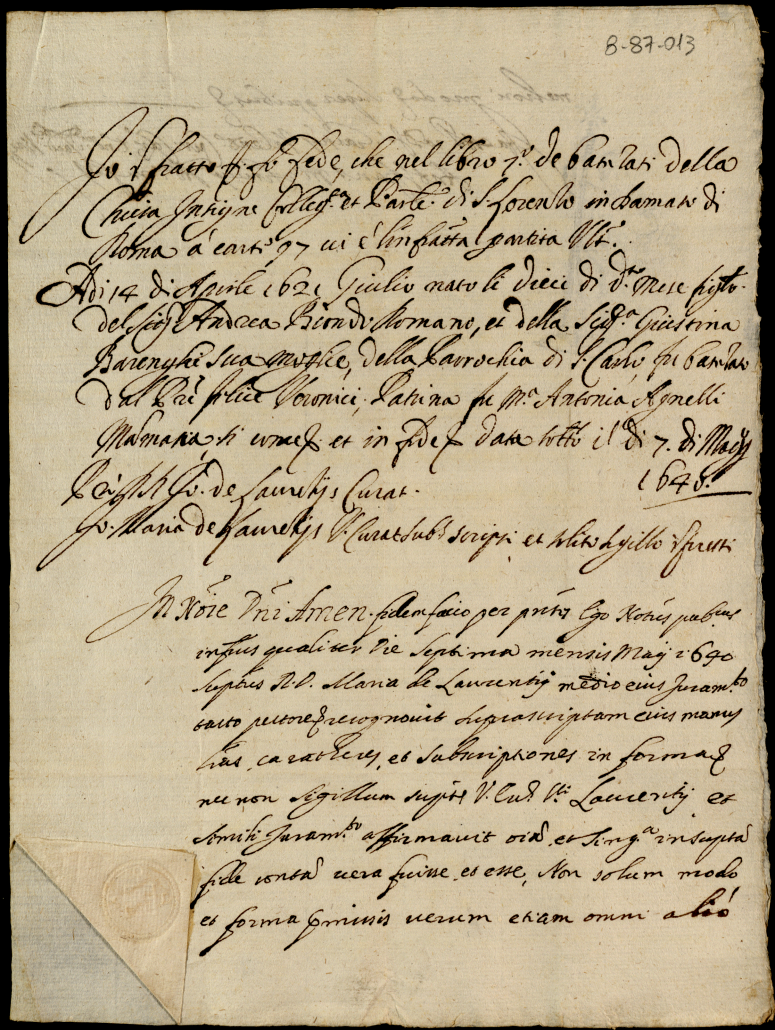 8-87-013
Io infratto fo fede, che nel libro 7º de batezati della
Chiesa Insigne Colleg.ta et Parole. di S. Lorenzo in Damaso di
Roma à carte 97 vi è l'infratta partita Vlt.
Adi 14 di Aprile 1621 Giulio nato li dieci di d.to Mese figlo.
del Sig.r Andrea Biondo Romano, et della Sig.ra Giustina
Barenghi sua moglie, della Parrochia di S. Carlo, fu batezato
dal Pre felice Veronici, Patrina fu M.a Antonia Agnelli
Mamana, et in fede data sotto il dì 7. di Maggio
1640.
Jo. de Laurentijs Curat.
Jo. Maria de Laurentijs V. Curat. subscripsi et solito sigillo
In Nõie Dñi Amen. fidem facio per pñtes Ego Notus publicus
infrus qualiter Die septima mensis Maij 1640
suptus R.D. Maria de Laurentijs medio eius Juram.to
tacto pectore recognovit suprascriptam eius manus
lras, caratheres, et subscriptiones in forma
nec non sigillum supte V. Cur. Sti Laurentij et
simili Juram.to affirmavit oia et sing.a in supta
fide conta vera fuisse et esse, Non solum modo
et forma pmissis verum etiam omni alio